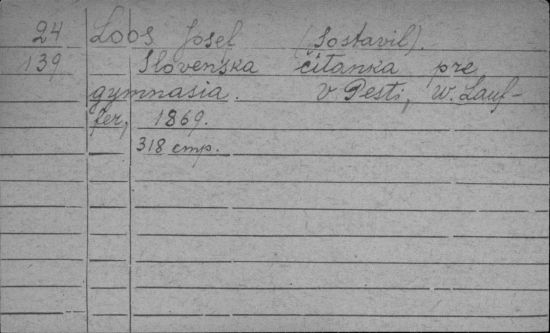 24 Loos Josef (sostavil).
139 Slovenska čitanka pre
gymnasia. V Pesti, W. Lauf-
fer, 1869.
318 стр.